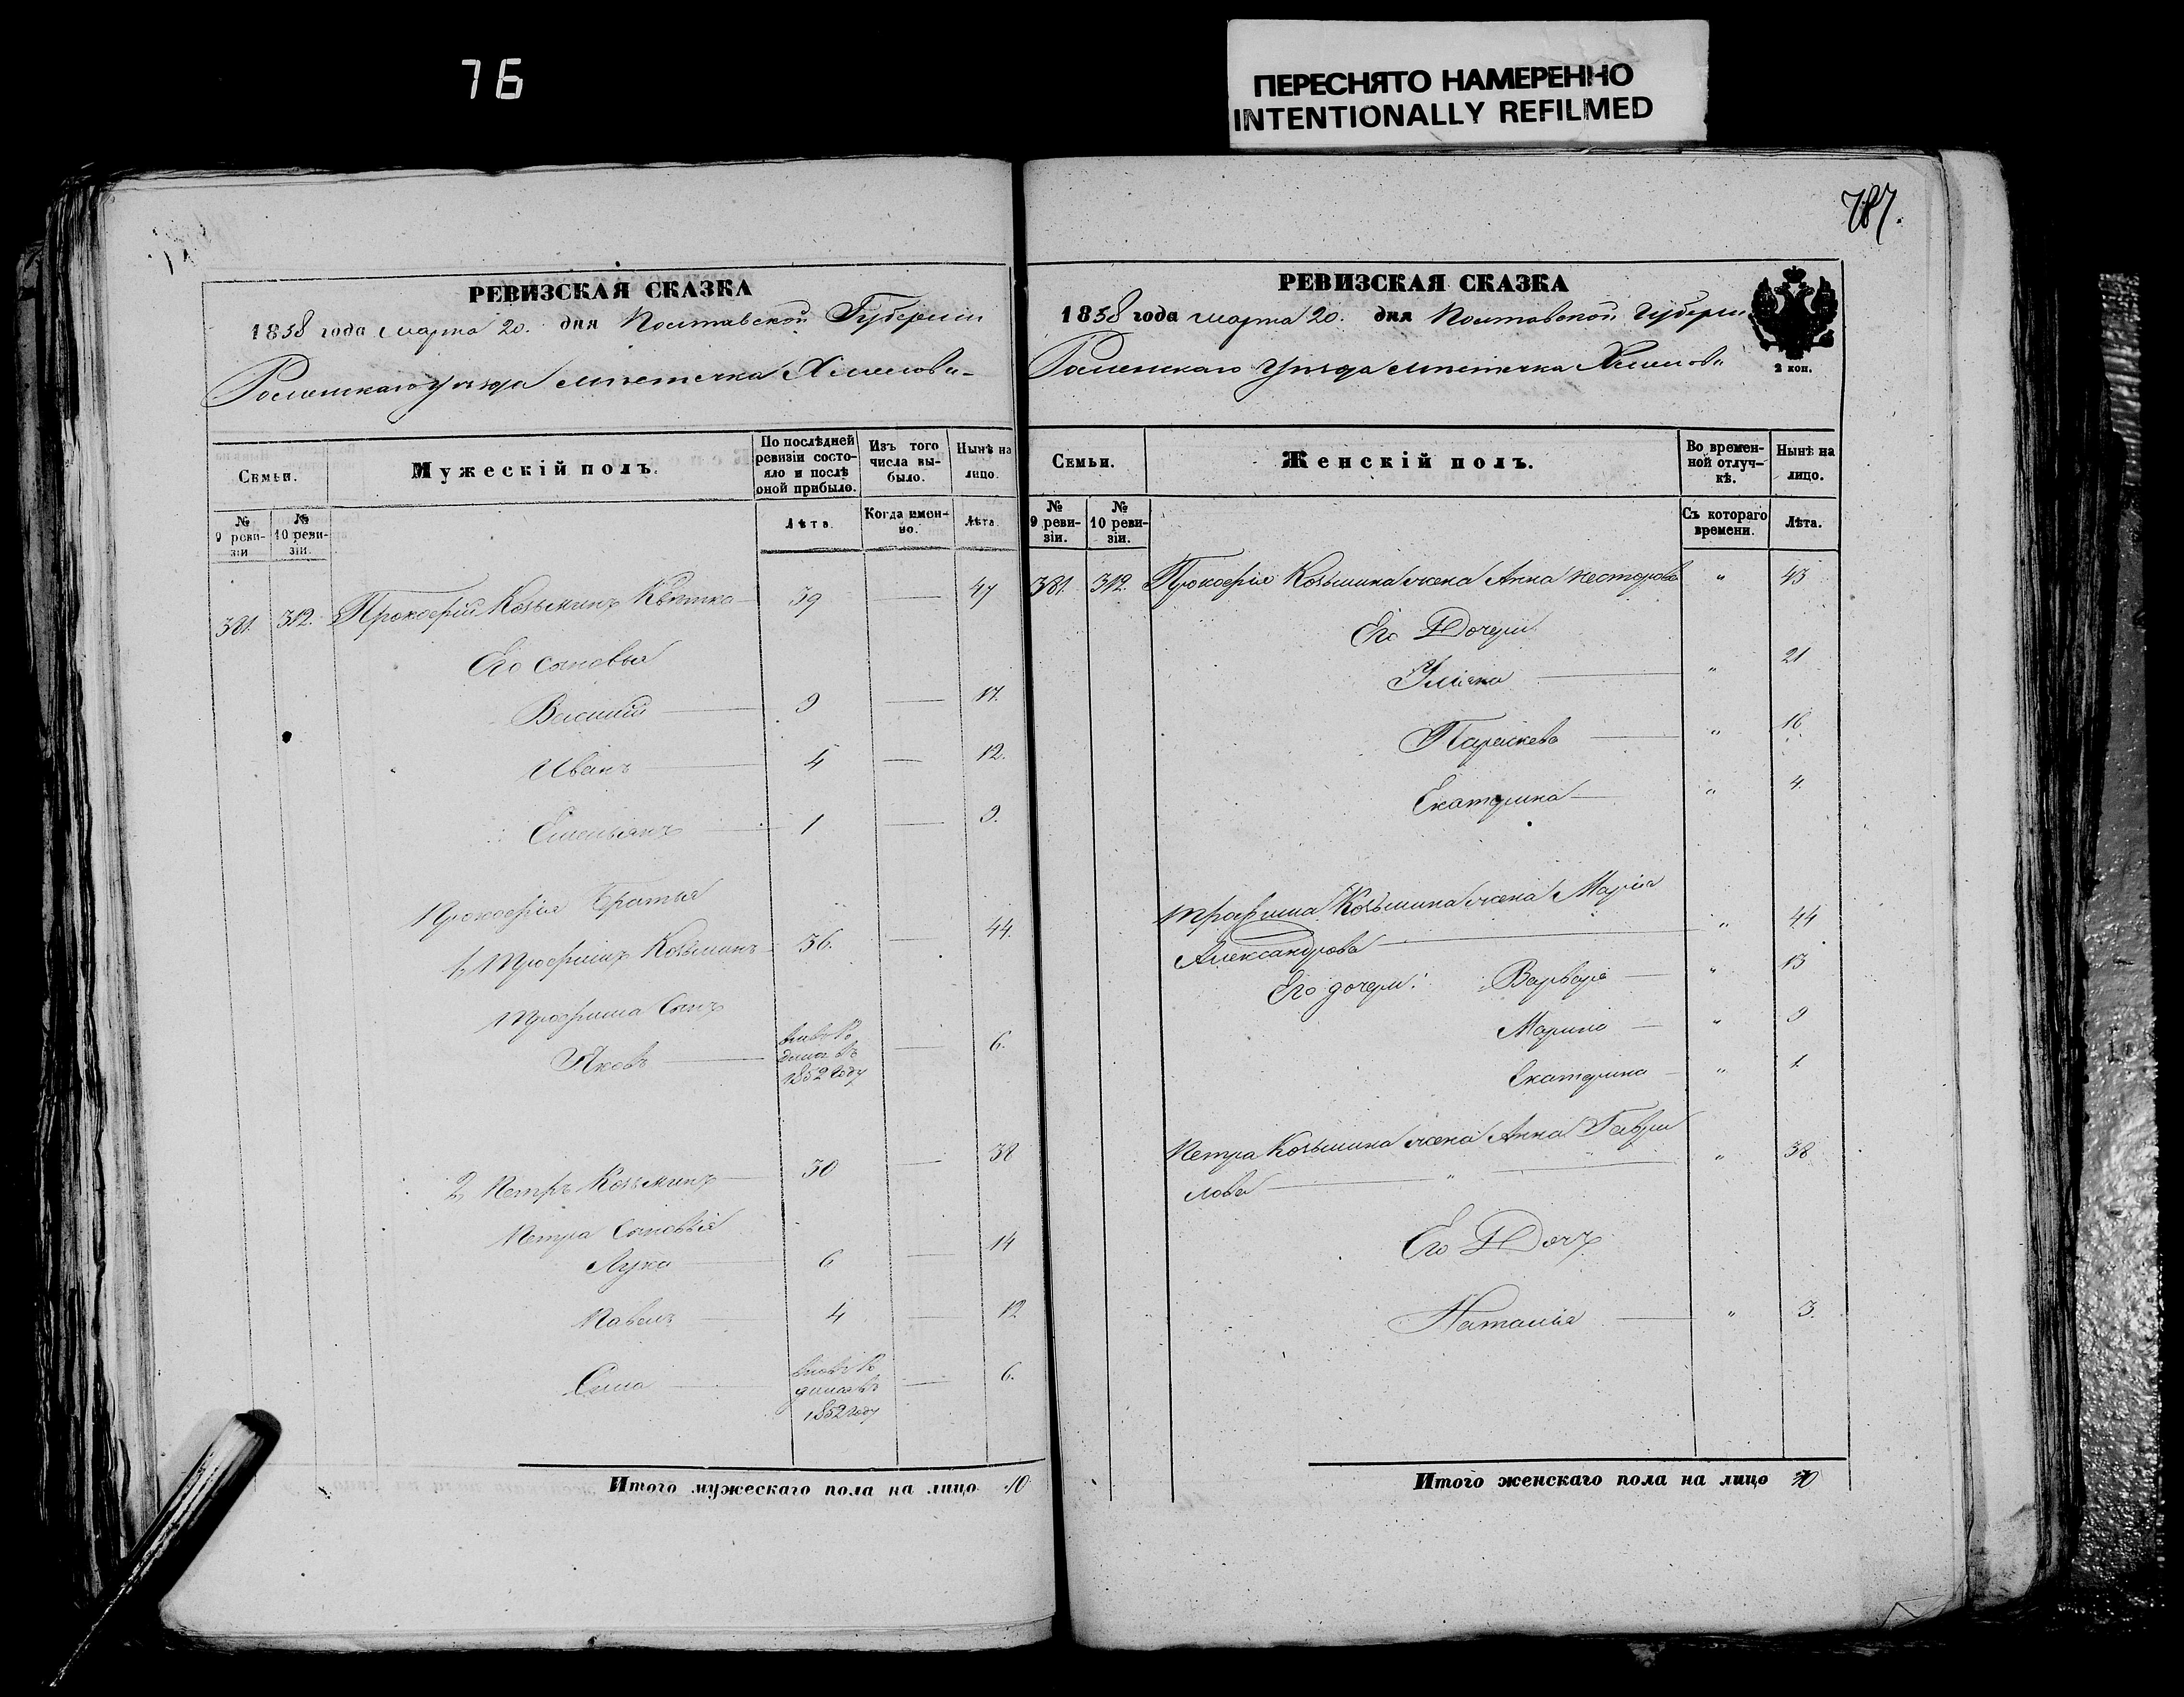 76
ПЕРЕСНЯТО НАМЕРЕННО
INTENTIONALLY REFILMED
787.
РЕВИЗСКАЯ СКАЗКА
1858 года марта 20. дня Полтавской Губерніи
Роменскаго уѣзда мѣстечка Хмелова
Семьи.
Мужескій полъ.
По послѣдней ревизіи состояло и послѣ оной прибыло.
Изъ того числа выбыло.
Нынѣ на лицо.
№ 9 ревизіи
№ 10 ревизіи.
Лѣта.
Когда именно.
Лѣта
381. 312. Прокофій Козьминъ Квитка 39 — 47
Его сыновья
Василій — 9 — 17.
Иванъ — 4 — 12.
Емельянъ — 1 — 9.
Прокофія Братья
1, Трофимъ Козьминъ 36. — 44.
Трофима Сынъ
Яковъ — 6.
1852 году
2, Петръ Козьминъ — 30 — 38
Петра Сыновья
Лука — 6 — 14
Павелъ — 4 — 12
Сима — 6.
1852 году
Итого мужескаго пола на лицо 10
РЕВИЗСКАЯ СКАЗКА
1858 года марта 20. дня Полтавской Губерніи
Роменскаго уѣзда мѣстечка Хмелова
2 коп.
Семьи.
Женскій полъ.
Во временной отлучкѣ.
Нынѣ на лицо.
№ 9 ревизіи.
№ 10 ревизіи.
Съ котораго времени.
Лѣта.
381. 312. Прокофія Козьмина жена Анна Несторова " 43
Его Дочери
Уліяна — " 21
Параскева — " 16
Екатерина — " 4.
Трофима Козьмина жена Марія
Александрова — " 44
Его дочери: Варвара — " 13
Марина — " 9
Екатерина — " 1.
Петра Козьмина жена Анна Гаври
лова — " 38
Его Дочь
Наталія — " 3.
Итого женскаго пола на лицо 10